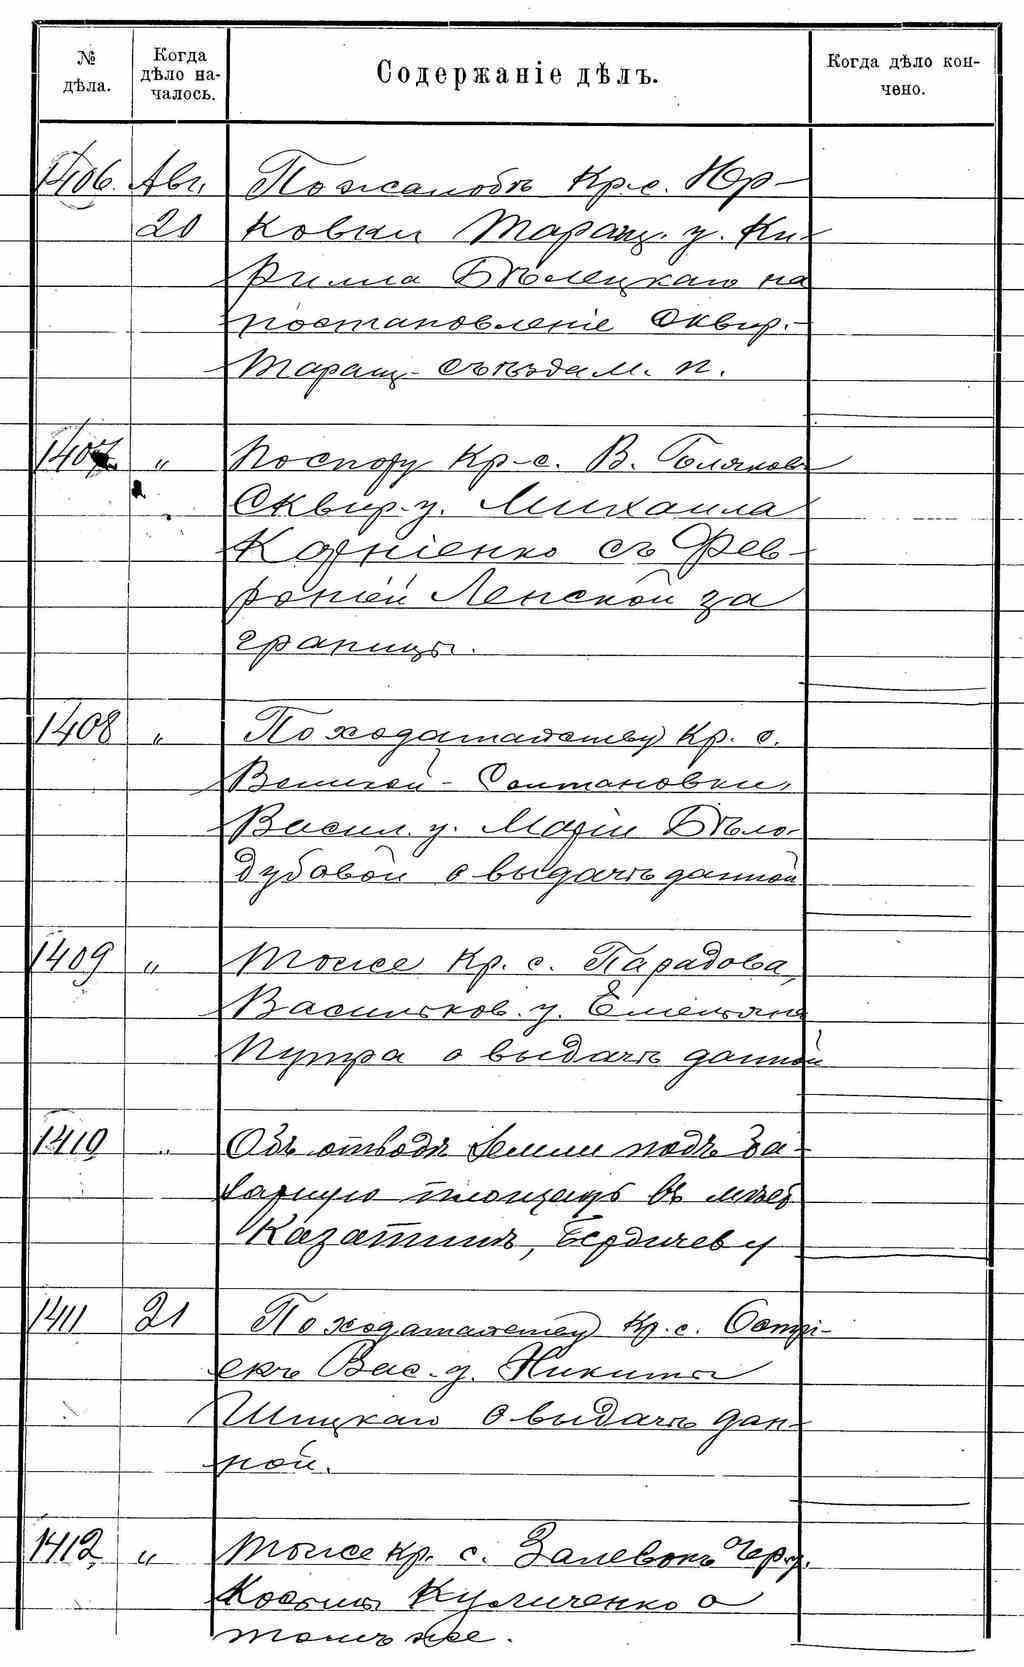 № дѣла.
Когда дѣло на-чалось.
Содержаніе дѣлъ.
Когда дѣло кон-чено.
1406. Авг. По жалобѣ Кр. с. Юр-
20 ковки Таращ. у. Ки-
рилла Бѣлецкаго на
постановленіе Сквир.-
Таращ. съѣзда м. п.
1407 " По спору Кр-с. В.
Сквир. у. Михаила
Корніенко съ Фев-
роніей Ленской за
границы.
1408 " По ходатайству Кр. с.
Великой-Солтановки,
Васил. у. Маріи Бѣло-
дубовой о выдачѣ данной
1409 " Тоже Кр. с. Парадова,
Васильков. у. Емельяна
Путра о выдачѣ данной
1410 " Объ отводѣ земли подъ ба-
зарную площадь въ мѣст
Казатинѣ, Бердичев у
1411 21 По ходатайству Кр. с. Острі-
екъ Вас. у. Никиты
Шпцкаго о выдачѣ дан-
ной.
1412 " Тоже кр. с. Залевокъ Чер. у.
Костыи о
томъ же.